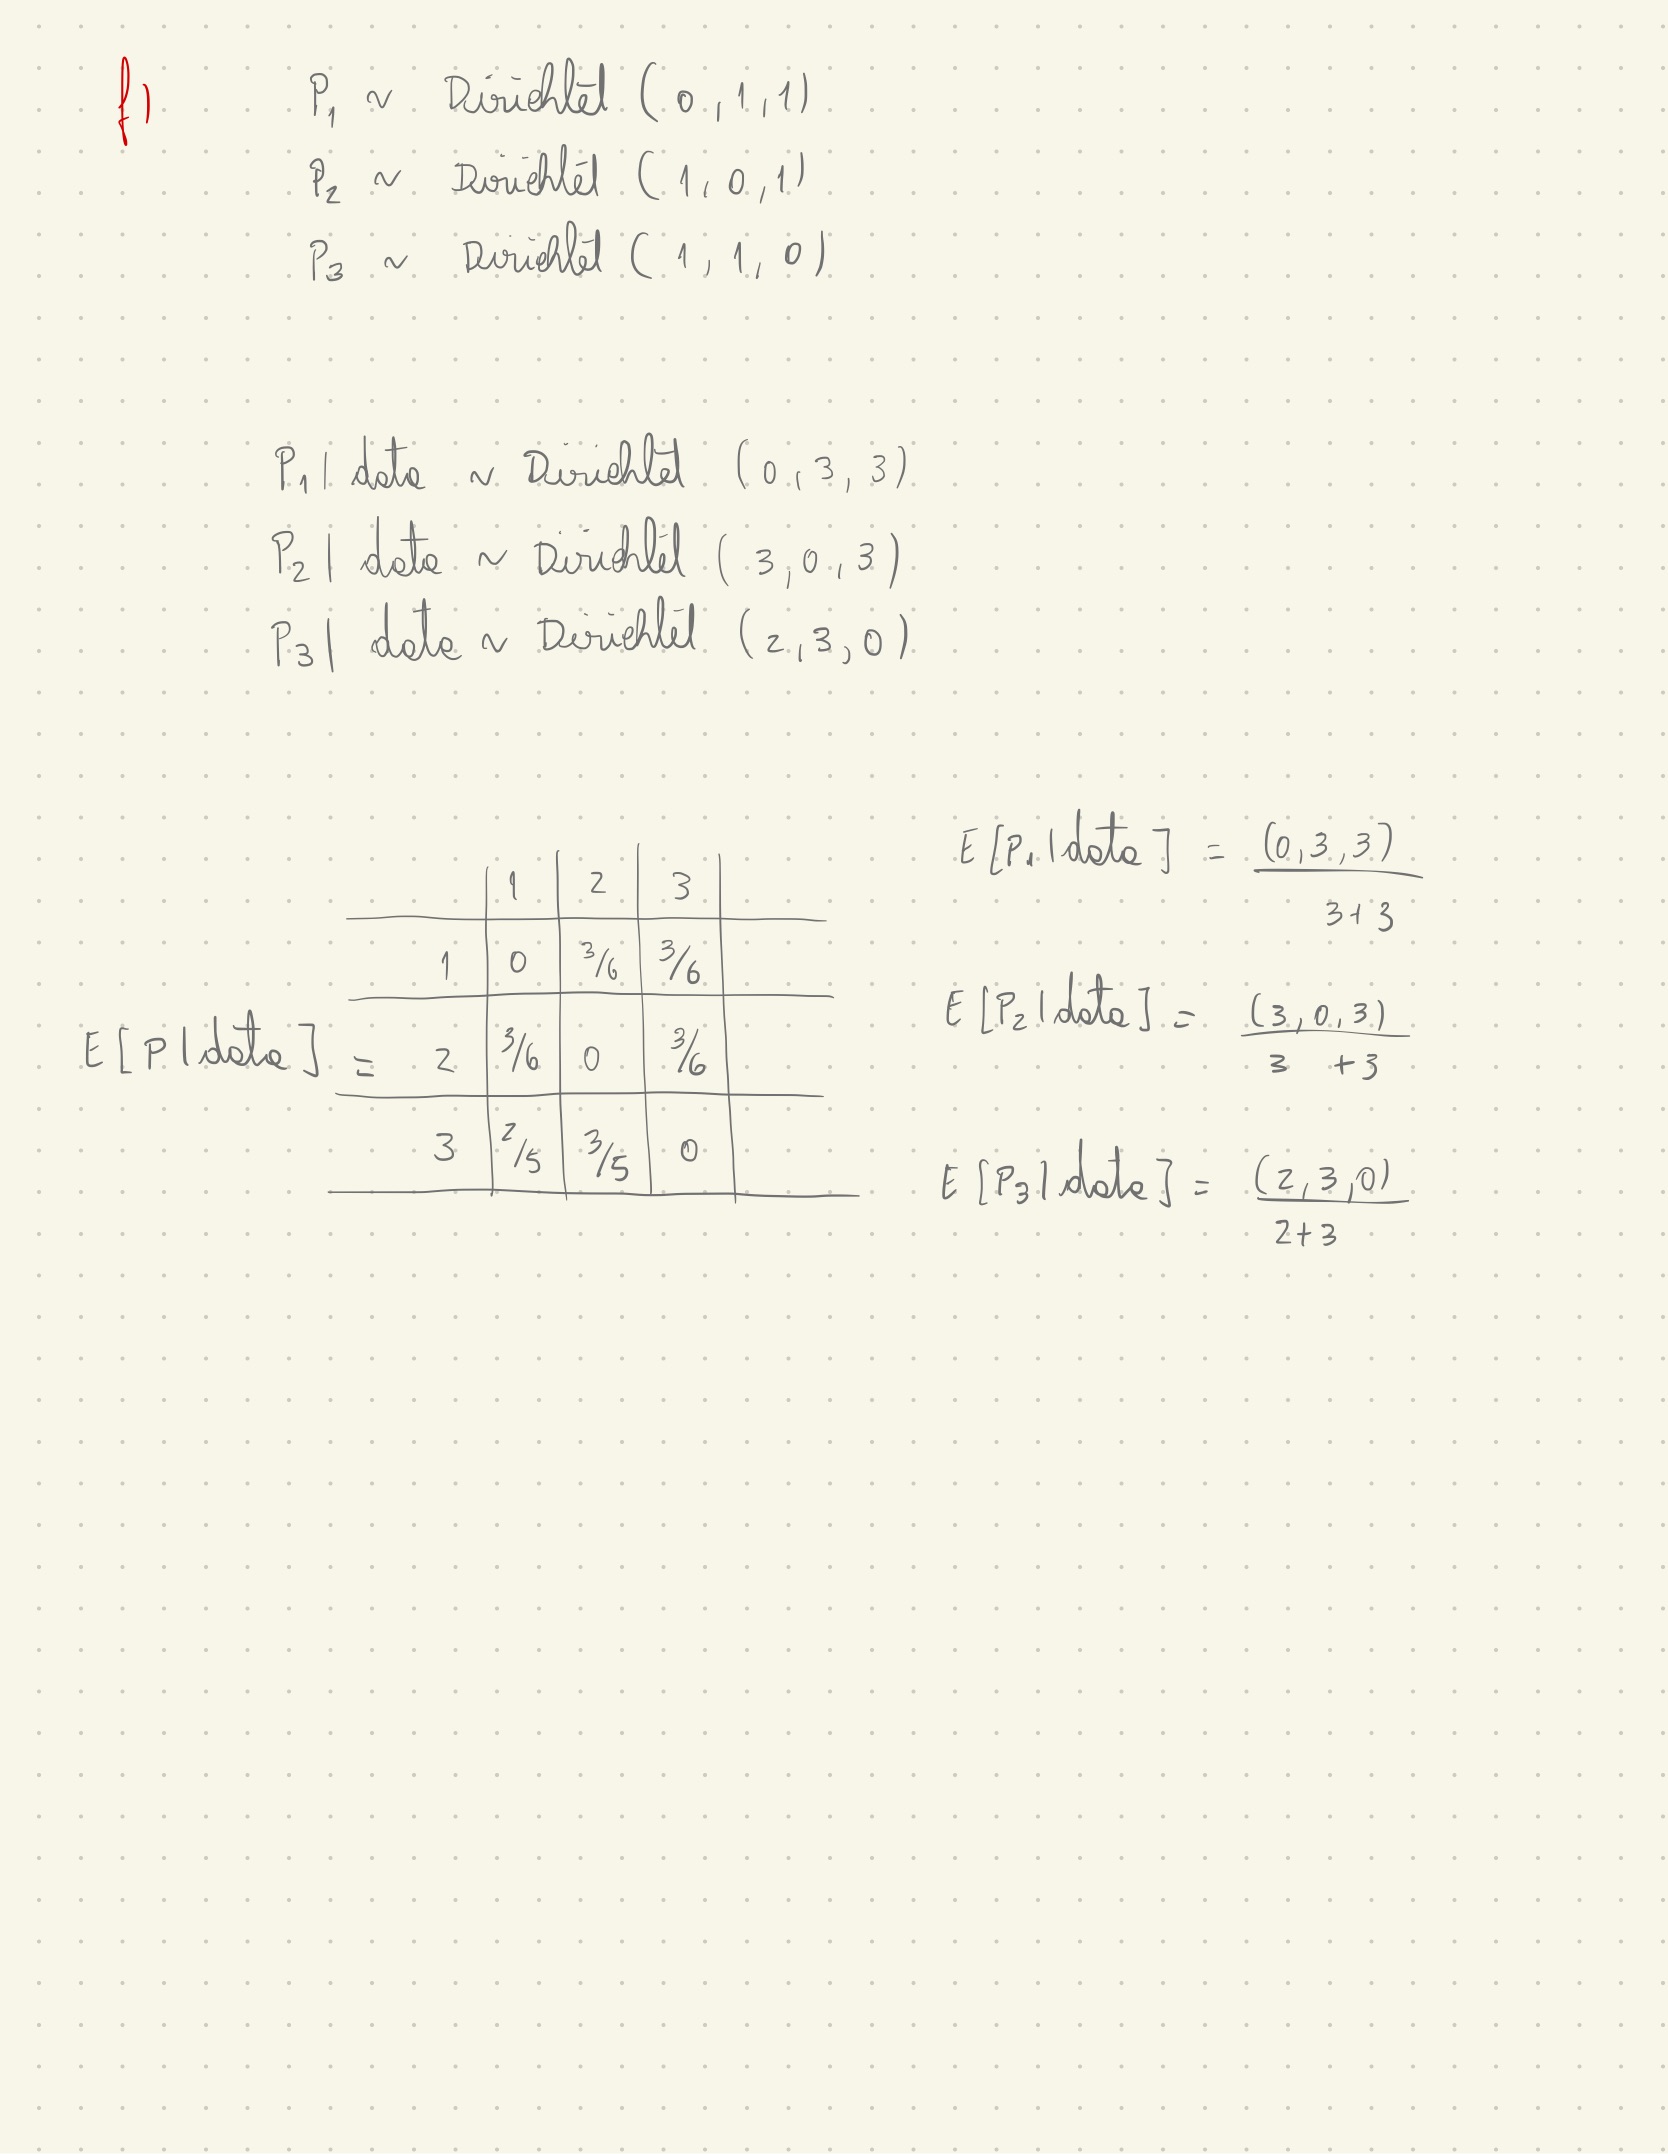 f)
P₁ ~ Dirichlet (0, 1, 1)
P₂ ~ Dirichlet (1, 0, 1)
P₃ ~ Dirichlet (1, 1, 0)
P₁ | data ~ Dirichlet (0, 3, 3)
P₂ | data ~ Dirichlet (3, 0, 3)
P₃ | data ~ Dirichlet (2, 3, 0)
E[P | data] =
1 2 3
1 0 3/6 3/6
2 3/6 0 3/6
3 2/5 3/5 0
E[P₁ | data] = (0, 3, 3)
3 + 3
E[P₂ | data] = (3, 0, 3)
3 + 3
E[P₃ | data] = (2, 3, 0)
2 + 3